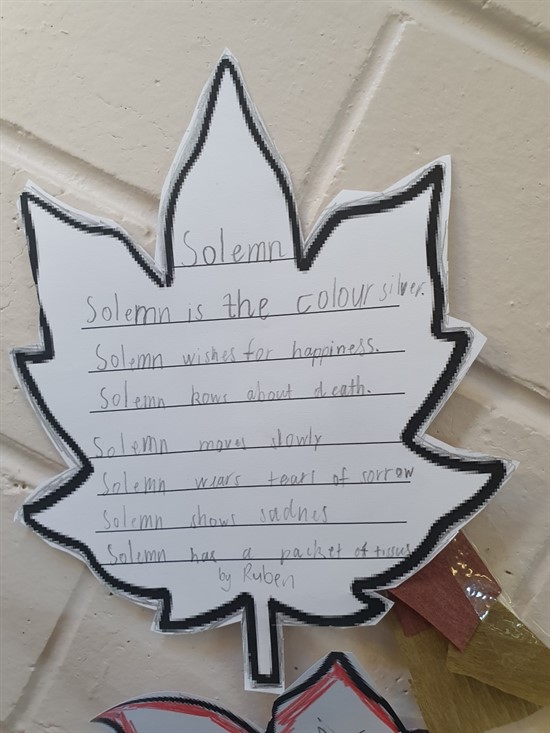 Solemn
Solemn is the colour silver.
Solemn wishes for happiness.
Solemn kows about death.
Solemn moves slowly
Solemn wears tears of sorrow
Solemn shows sadnes
Solemn has a packet of tissus
by Ruben